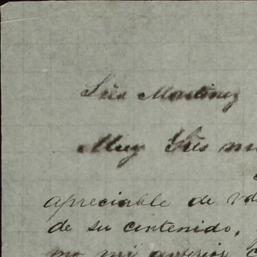 Sres Martinez
Muy Sres
apreciable de
de su contenido,
mi anterior